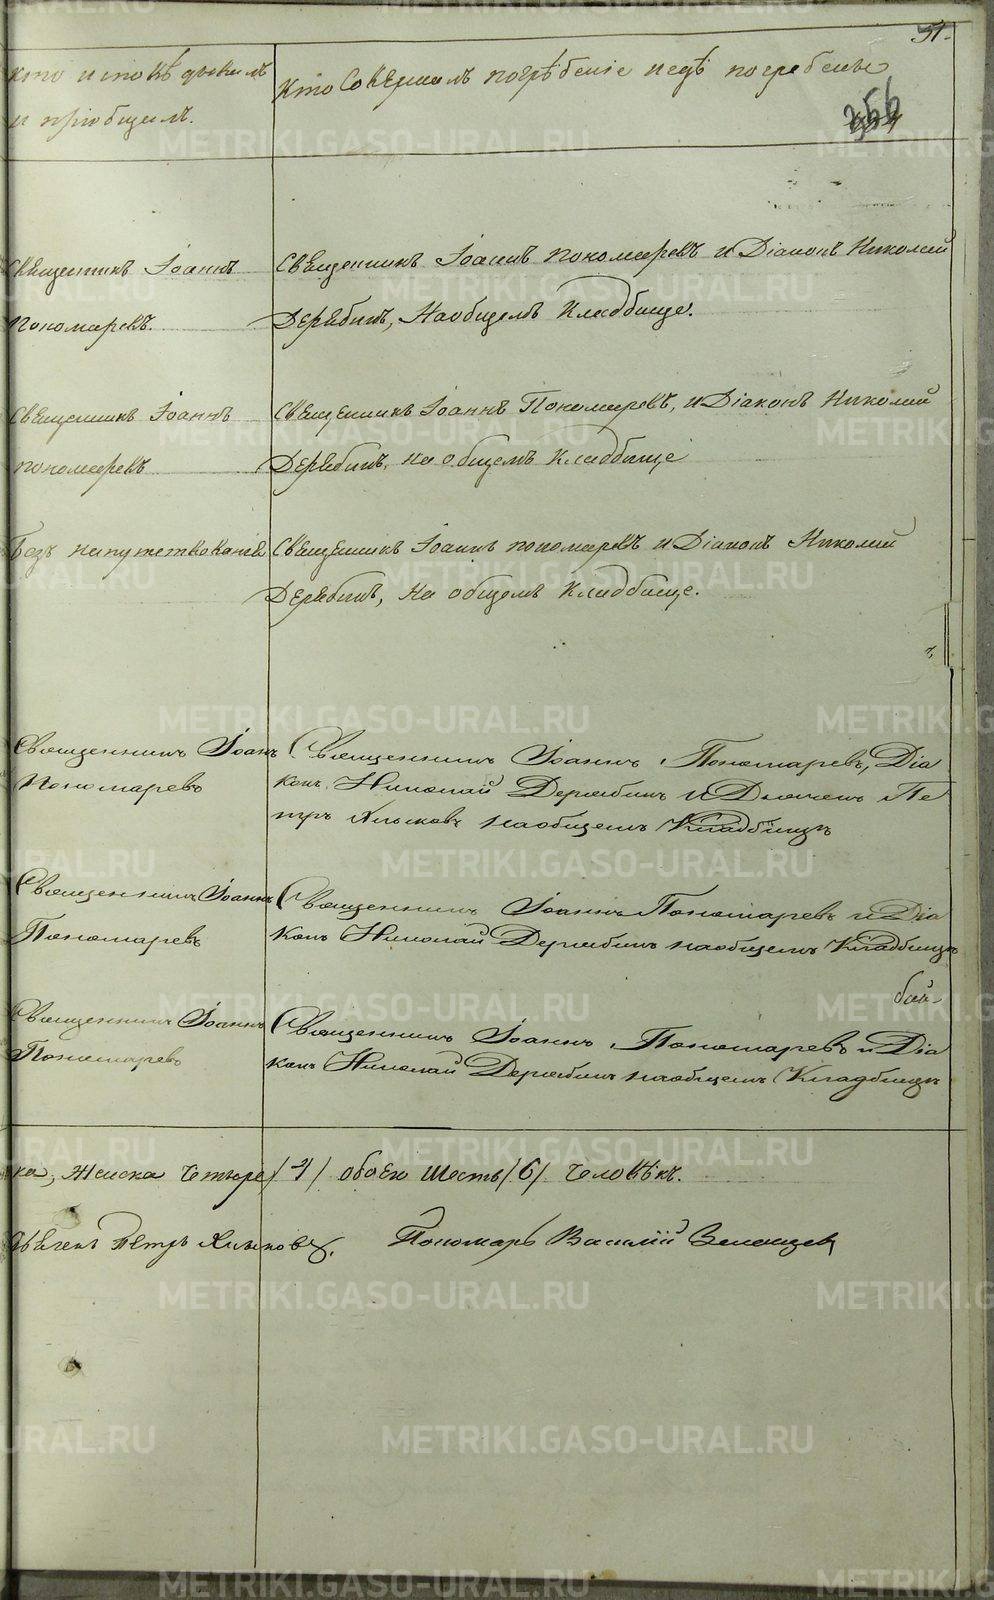 51.
кто исповѣдывалъ
и пріобщилъ.
кто совершалъ погребеніе и гдѣ погребены
356
Священникъ Іоаннъ
Пономаревъ.
Священникъ Іоаннъ пономаревъ и Діаконъ Николай
Дерябинъ, На общемъ Кладбище.
Священникъ Іоаннъ
пономаревъ
Священникъ Іоаннъ Пономаревъ, и Діаконъ Николай
Дерябинъ, на общемъ Кладбище
Безъ напутствованія
Священникъ Іоаннъ пономаревъ и Діаконъ Николай
Дерябинъ, на общемъ Кладбище.
Священникъ Іоаннъ
Пономаревъ
Священникъ Іоаннъ Пономаревъ, Діа
конъ Николай Дерябинъ и Дьячекъ Пе
тръ Хлыновъ на общемъ Кладбищѣ
Священникъ Іоаннъ
Пономаревъ
Священникъ Іоаннъ Пономаревъ и Діа
конъ Николай Дерябинъ на общемъ Кладбищѣ
Священникъ Іоаннъ
Пономаревъ
Священникъ Іоаннъ Пономаревъ и Діа
конъ Николай Дерябинъ на общемъ Кладбищѣ
ка, Женска четыре /4/ обоего шесть /6/ человѣкъ.
Дьячекъ Петръ Хлыновъ. Пономарь Василій Зеленцевъ
METRIKI.GASO-URAL.RU